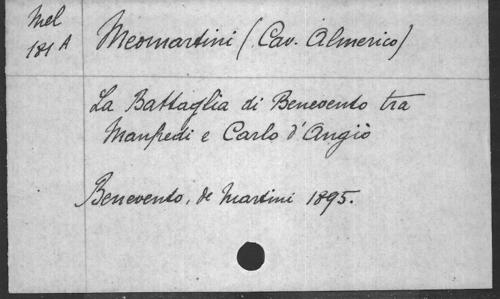 Mel
181 A
Meomartini (Cav. Almerico)
La Battaglia di Benevento tra
Manfredi e Carlo d'Angiò
Benevento, de Martini 1895.